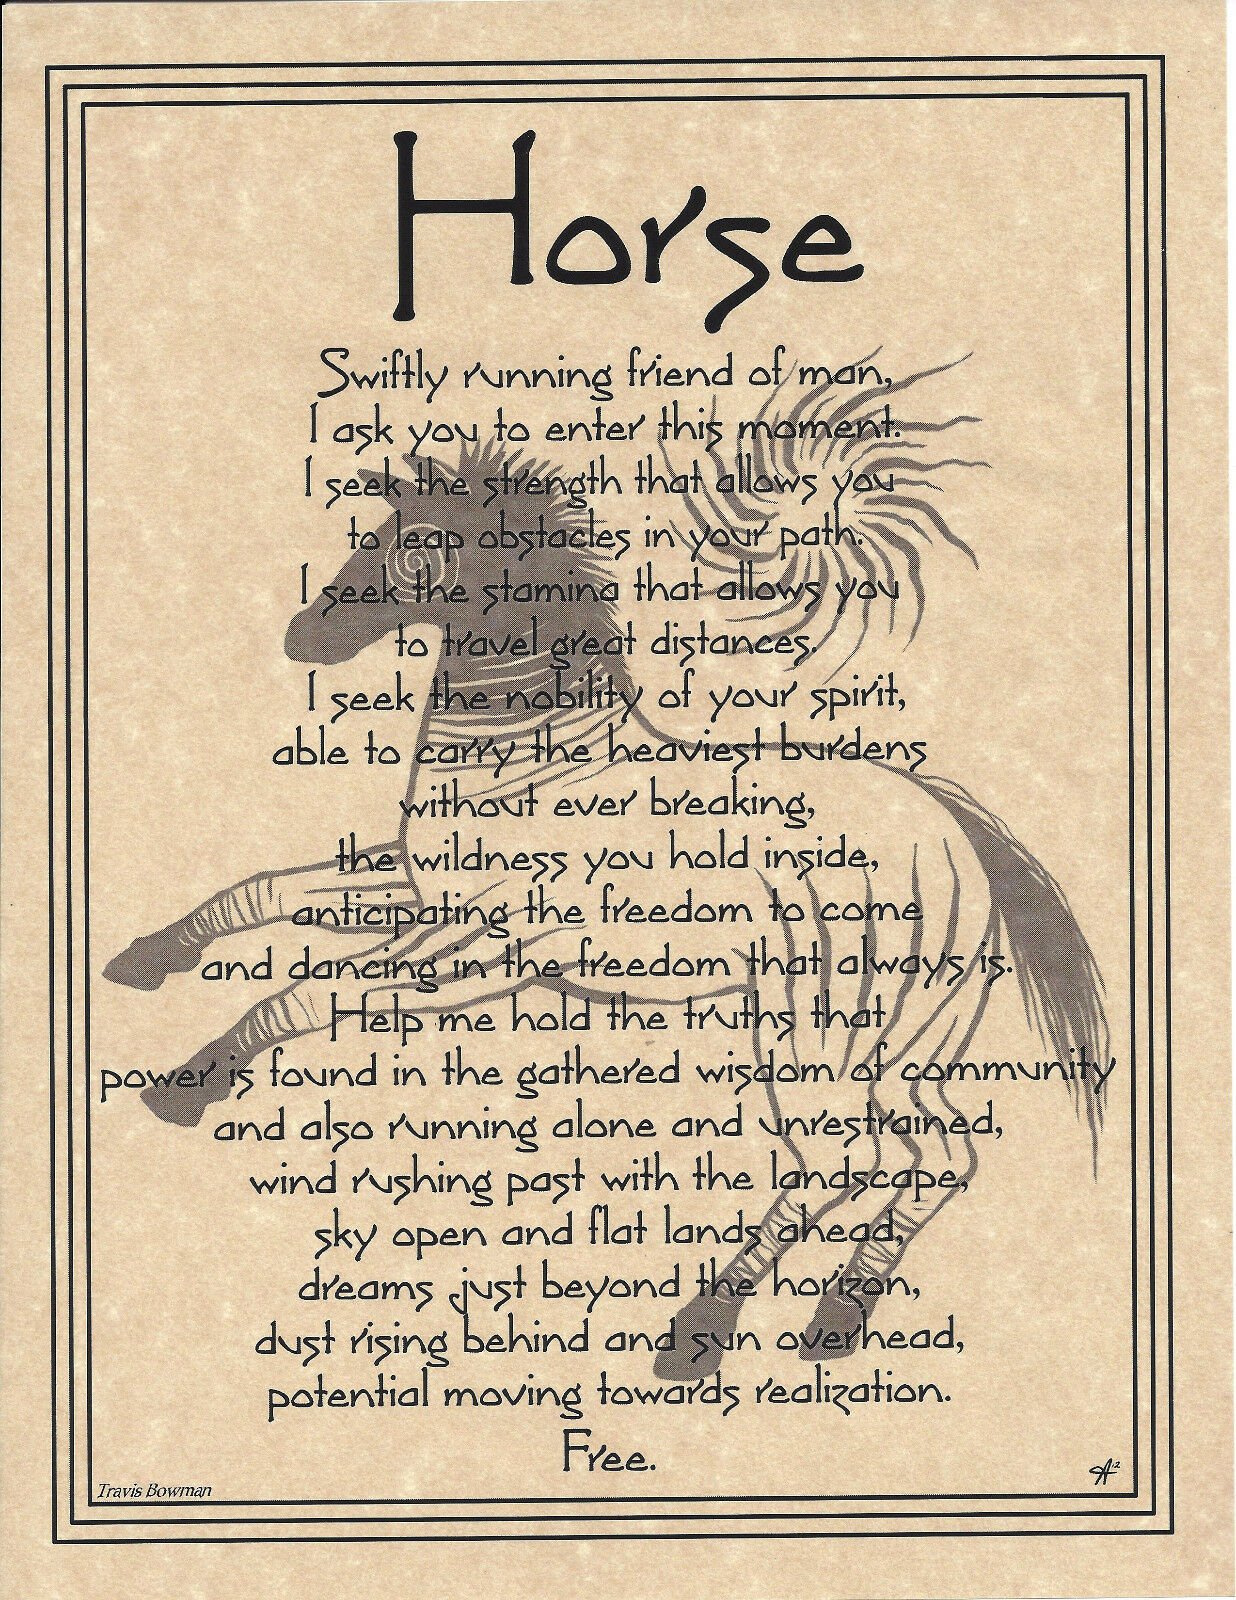 Horse
Swiftly running friend of man,
I ask you to enter this moment.
I seek the strength that allows you
to leap obstacles in your path.
I seek the stamina that allows you
to travel great distances.
I seek the nobility of your spirit,
able to carry the heaviest burdens
without ever breaking,
the wildness you hold inside,
anticipating the freedom to come
and dancing in the freedom that always is.
Help me hold the truths that
power is found in the gathered wisdom of community
and also running alone and unrestrained,
wind rushing past with the landscape,
sky open and flat lands ahead,
dreams just beyond the horizon,
dust rising behind and sun overhead,
potential moving towards realization.
Free.
Travis Bowman